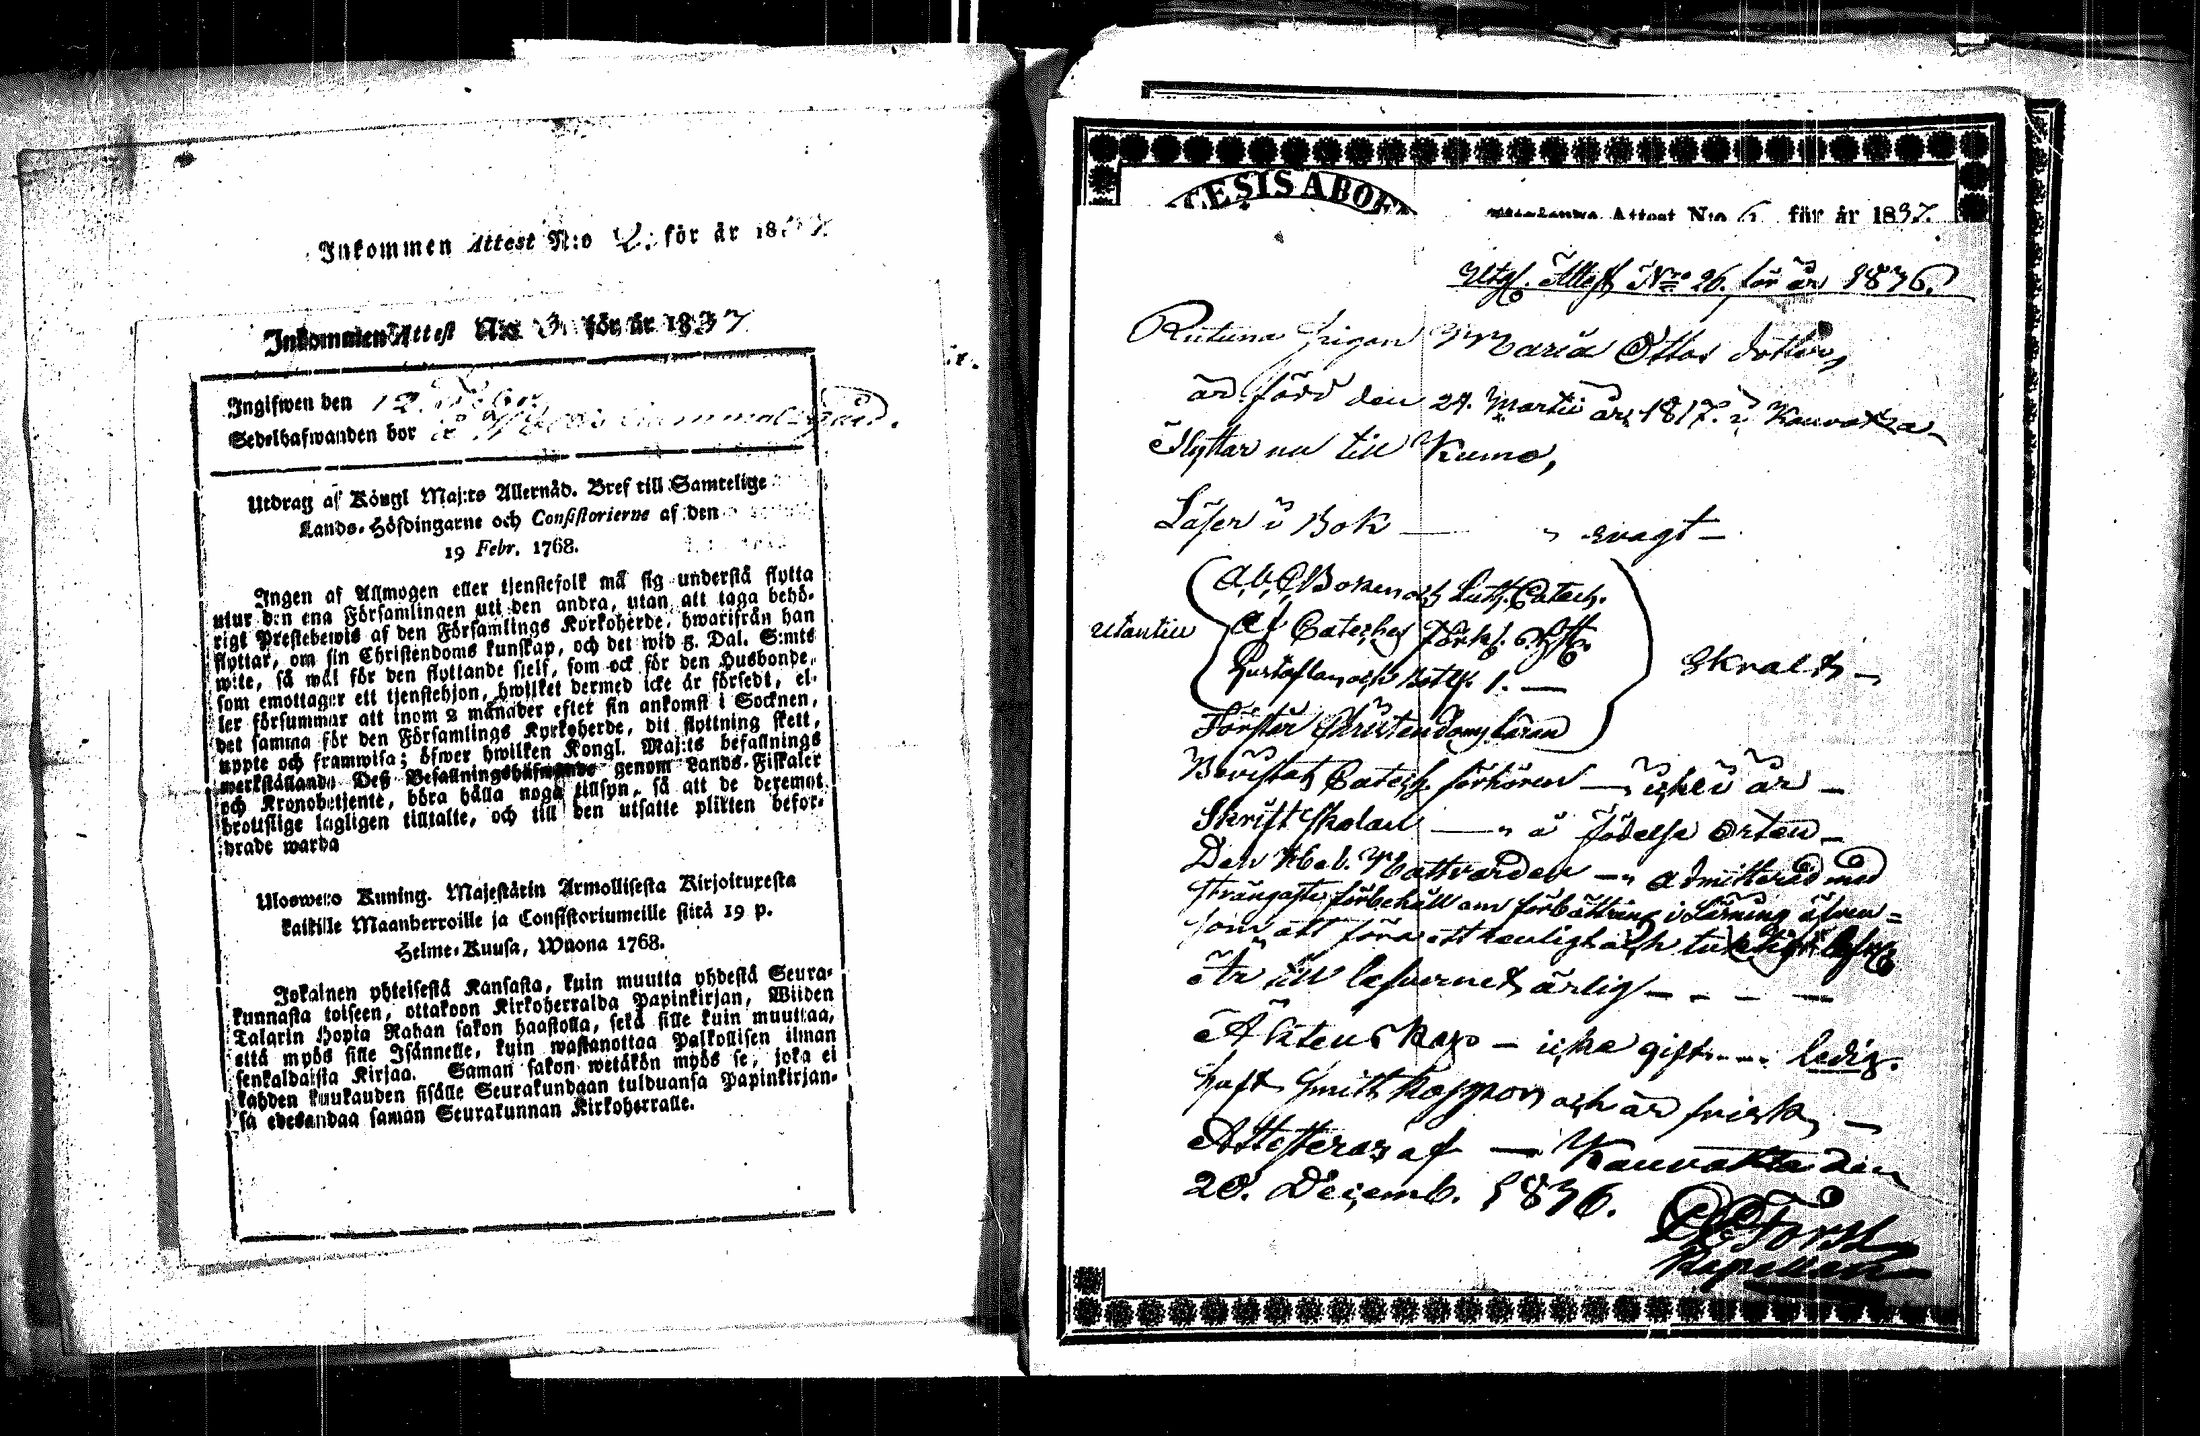 Inkommen Attest N:o 2. för år 1837
Inkommen Attest N:o 3. för år 1837
Ingifwen den 12. Febr.
Sedelhafwanden bor å Gammalgård.
Utdrag af Kongl Maj:ts Allernåd. Bref till Samtelige
Lands-Höfdingarne och Consistorierne af den
19 Febr. 1768.
Ingen af Allmogen eller tjenstefolk må sig understå flytta
utur den ena Församlingen uti den andra, utan att taga behö-
rigt Prestebewis af den Församlings Kyrkoherde, hwarifrån han
flyttar, om sin Christendoms kunskap, och det wid 5. Dal. S:mts
wite, så wäl för den flyttande sielf, som ock för den Husbonde,
som emottager ett tjenstehjon, hwilket dermed icke är försedt, el-
ler försummar att inom 2 månader efter sin ankomst i Socknen,
det samma för den Församlings Kyrkoherde, dit flyttning skett,
uppte och framwisa; öfwer hwilken Kongl. Maj:ts befallnings
werkställande Deß Befallningshafwande genom Lands-Fiskaler
och Kronobetjente, böra hålla noga tillsyn, så att de deremot
brottslige lagligen tilltalte, och till den utsatte plikten befor-
drade warda
Ulosweto Kuning. Majestätin Armollisesta Kirjoituxesta
kaikille Maanherroille ja Consistoriumeille siitä 19 p.
Helme-Kuusa, Wuona 1768.
Jokainen yhteisestä Kansasta, kuin muutta yhdestä Seura-
kunnasta toiseen, ottakoon Kirkoherralda Papinkirjan, Wiiden
Talarin Hopia Rahan sakon haastolla, sekä sille kuin muuttaa,
että myös sille Isännelle, kuin wastanottaa Palkollisen ilman
senkaldaista Kirjaa. Saman sakon wetäkön myös se, joka ei
kahden kuukauden sisälle Seurakundaan tulduansa Papinkirjan-
sa edesandaa saman Seurakunnan Kirkoherralle.
CESIS ABOE
Attest N:o 6 för år 1837.
Utgf. Attest Nro 26. för år 1836.
Pigan Maria Ottos dotter,
är född den 24. Martii år 1817. i Kauvatsa
Flyttar nu till Kumo,
Läser i Bok — svagt —
utantill
A,b,C, Boken och Luth. Catech.
Af Catechs Förkl.
Hustaflan och
Förstår Christendoms läran
Skralt —
Bevistat Catech. förhören — i år —
Skrift skolan — i födelse orten —
Den H. Nattvarden — admitterad med
strängaste förbehåll om förbättring i Läsning äfven=
som att föra ett
Är till lefvernet ärlig — — — —
Äktenskap — icke gift — — ledig.
haft Smittkoppor och är frisk —
Attesteras af — Kauvatsa den
20. Decemb. 1836.